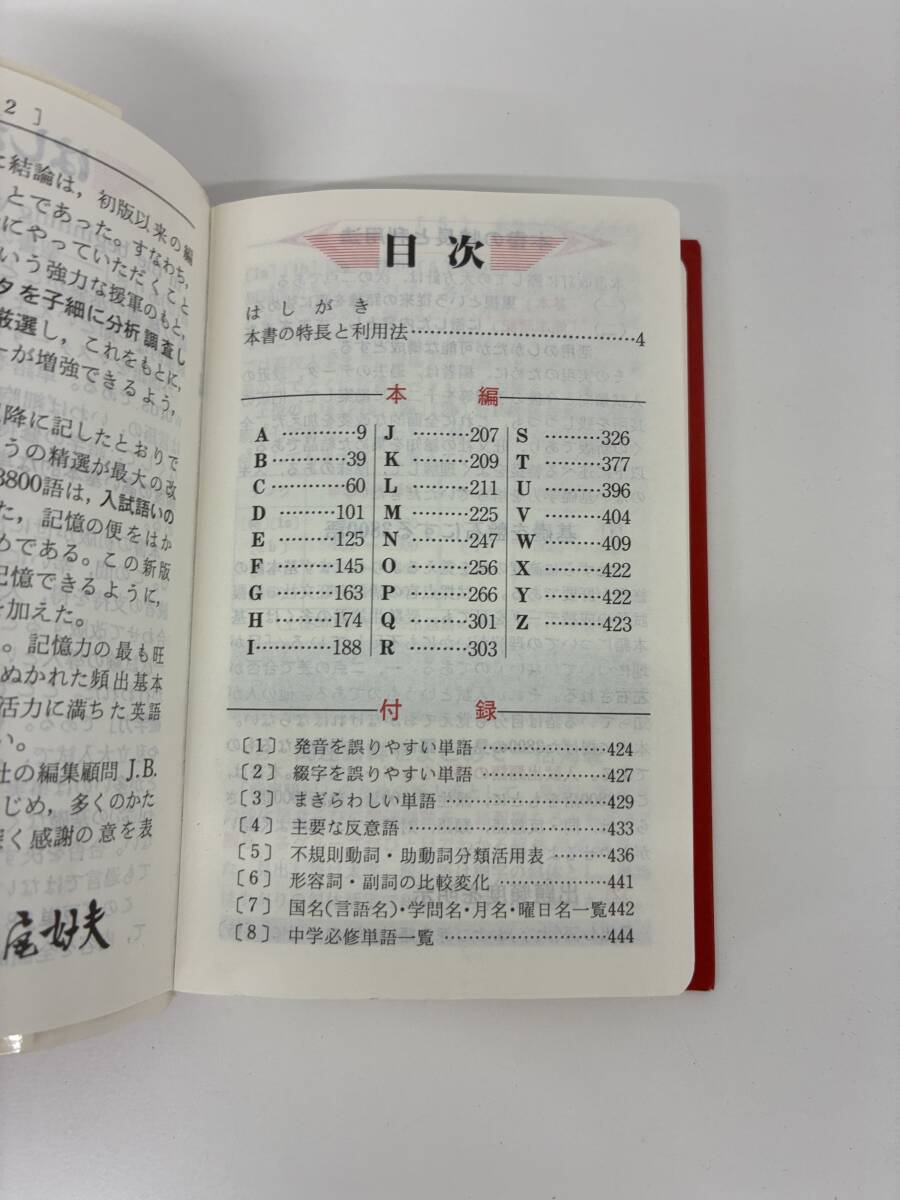 2 〕
結論は，初版以来の編
とであった。すなわち，
にやっていただくこと
いう強力な援軍のもと，
タを子細に分析調査し
厳選し，これをもとに，
ーが増強できるよう，
降に記したとおりで
うの精選が最大の改
3800語は，入試語いの
た，記憶の便をはか
めである。この新版
記憶できるように，
を加えた。
。記憶力の最も旺
ぬかれた頻出基本
活力に満ちた英語
い。
社の編集顧問 J.B.
じめ，多くのかた
深く感謝の意を表
好夫
目次
はしがき
本書の特長と利用法……………………………4
本編
A …………9
B …………39
C …………60
D …………101
E …………125
F …………145
G …………163
H …………174
I …………188
J …………207
K …………209
L …………211
M …………225
N …………247
O …………256
P …………266
Q …………301
R …………303
S …………326
T …………377
U …………396
V …………404
W …………409
X …………422
Y …………422
Z …………423
付録
〔1〕 発音を誤りやすい単語 ………………424
〔2〕 綴字を誤りやすい単語 ………………427
〔3〕 まぎらわしい単語 ……………………429
〔4〕 主要な反意語 …………………………433
〔5〕 不規則動詞・助動詞分類活用表 ………436
〔6〕 形容詞・副詞の比較変化 ……………441
〔7〕 国名(言語名)・学問名・月名・曜日名一覧442
〔8〕 中学必修単語一覧 ……………………444